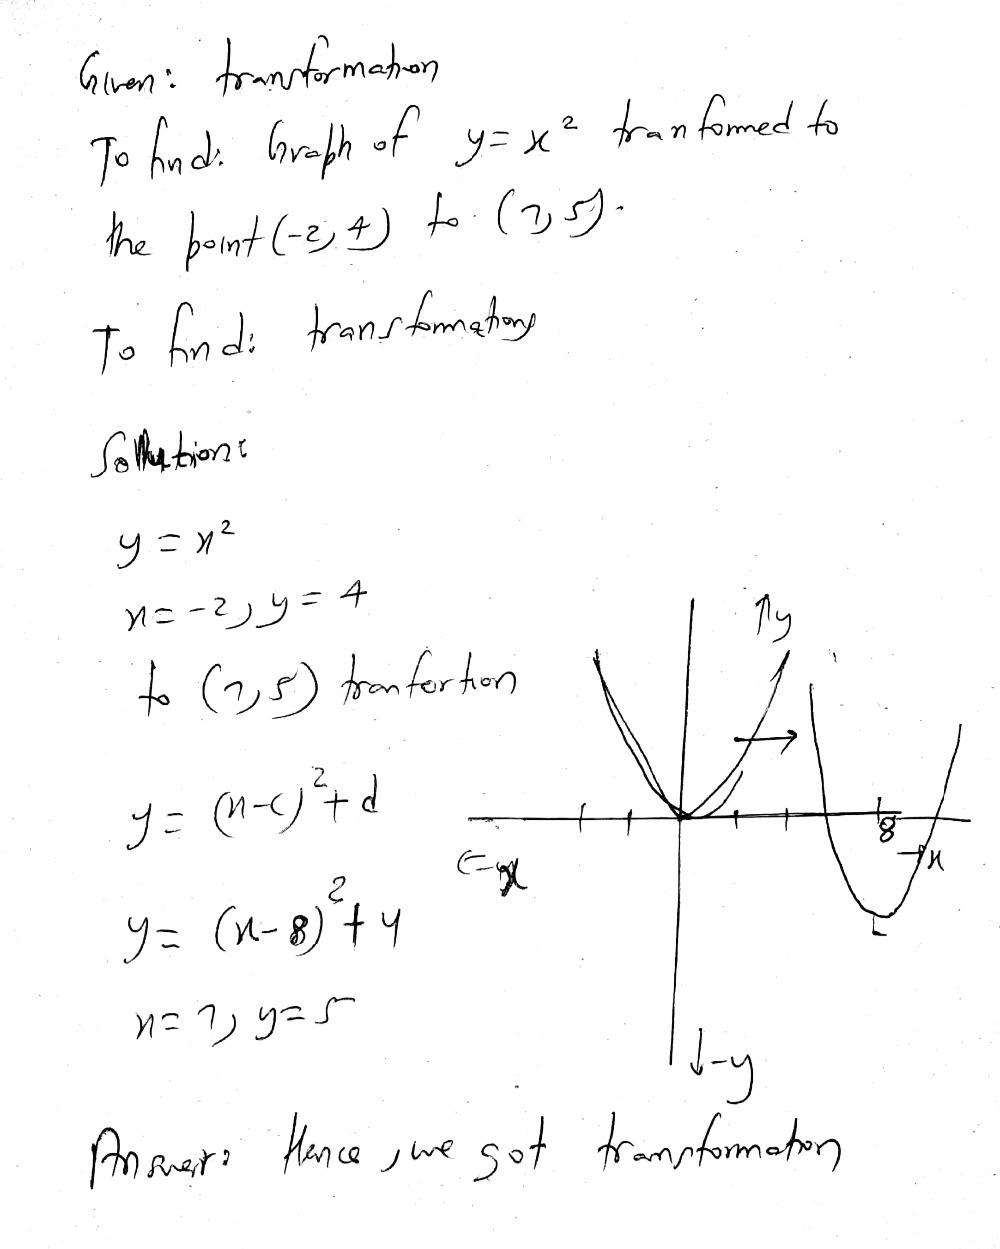 Given: transformation
To find: Graph of y = x² tranformed to
the point (-2, 4) to (7, 5).
To find: transformations
Sollution:
y = x²
x = -2, y = 4
to (7, 5) tranfortion
y = (x-c)² + d
y = (x-8)² + 4
x = 7, y = 5
↑y
8
→x
←-x
↓-y
Answer: Hence, we got transformation